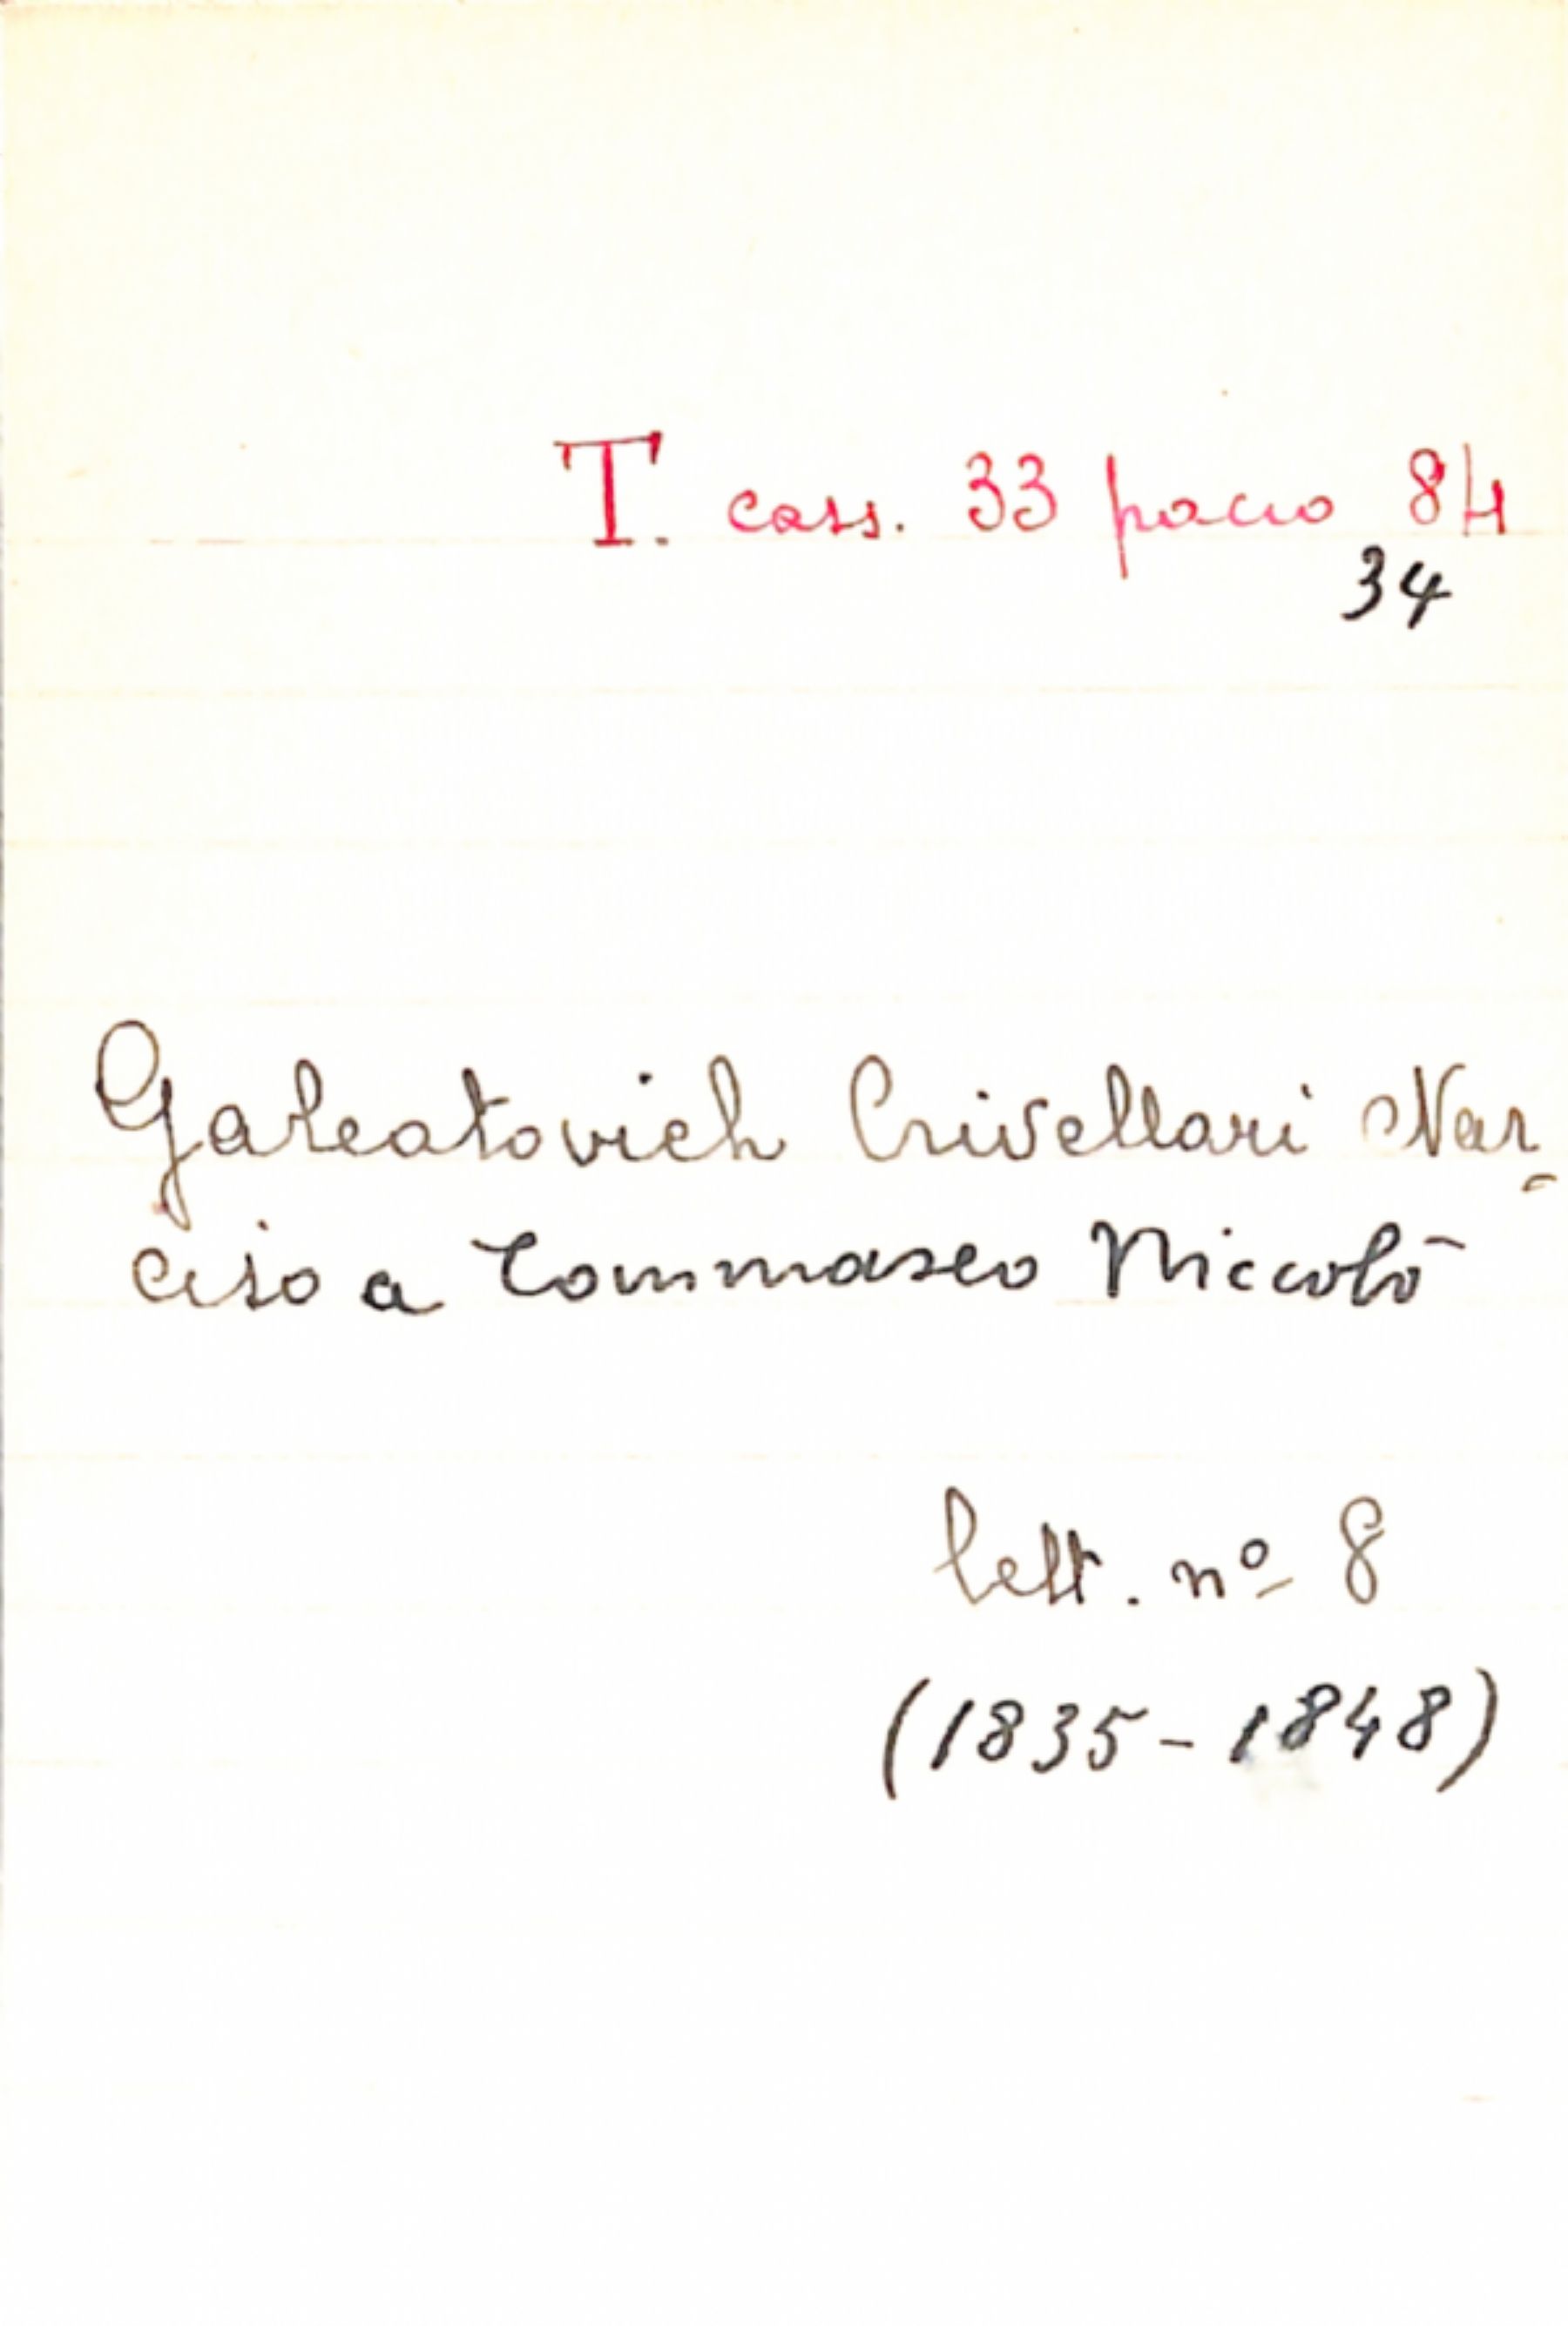 T. cass. 33 pacco 84
34
Galeatovich Crivellari Nar-
ciso a Tommaseo Niccolò
lett. nº 8
(1835-1848)